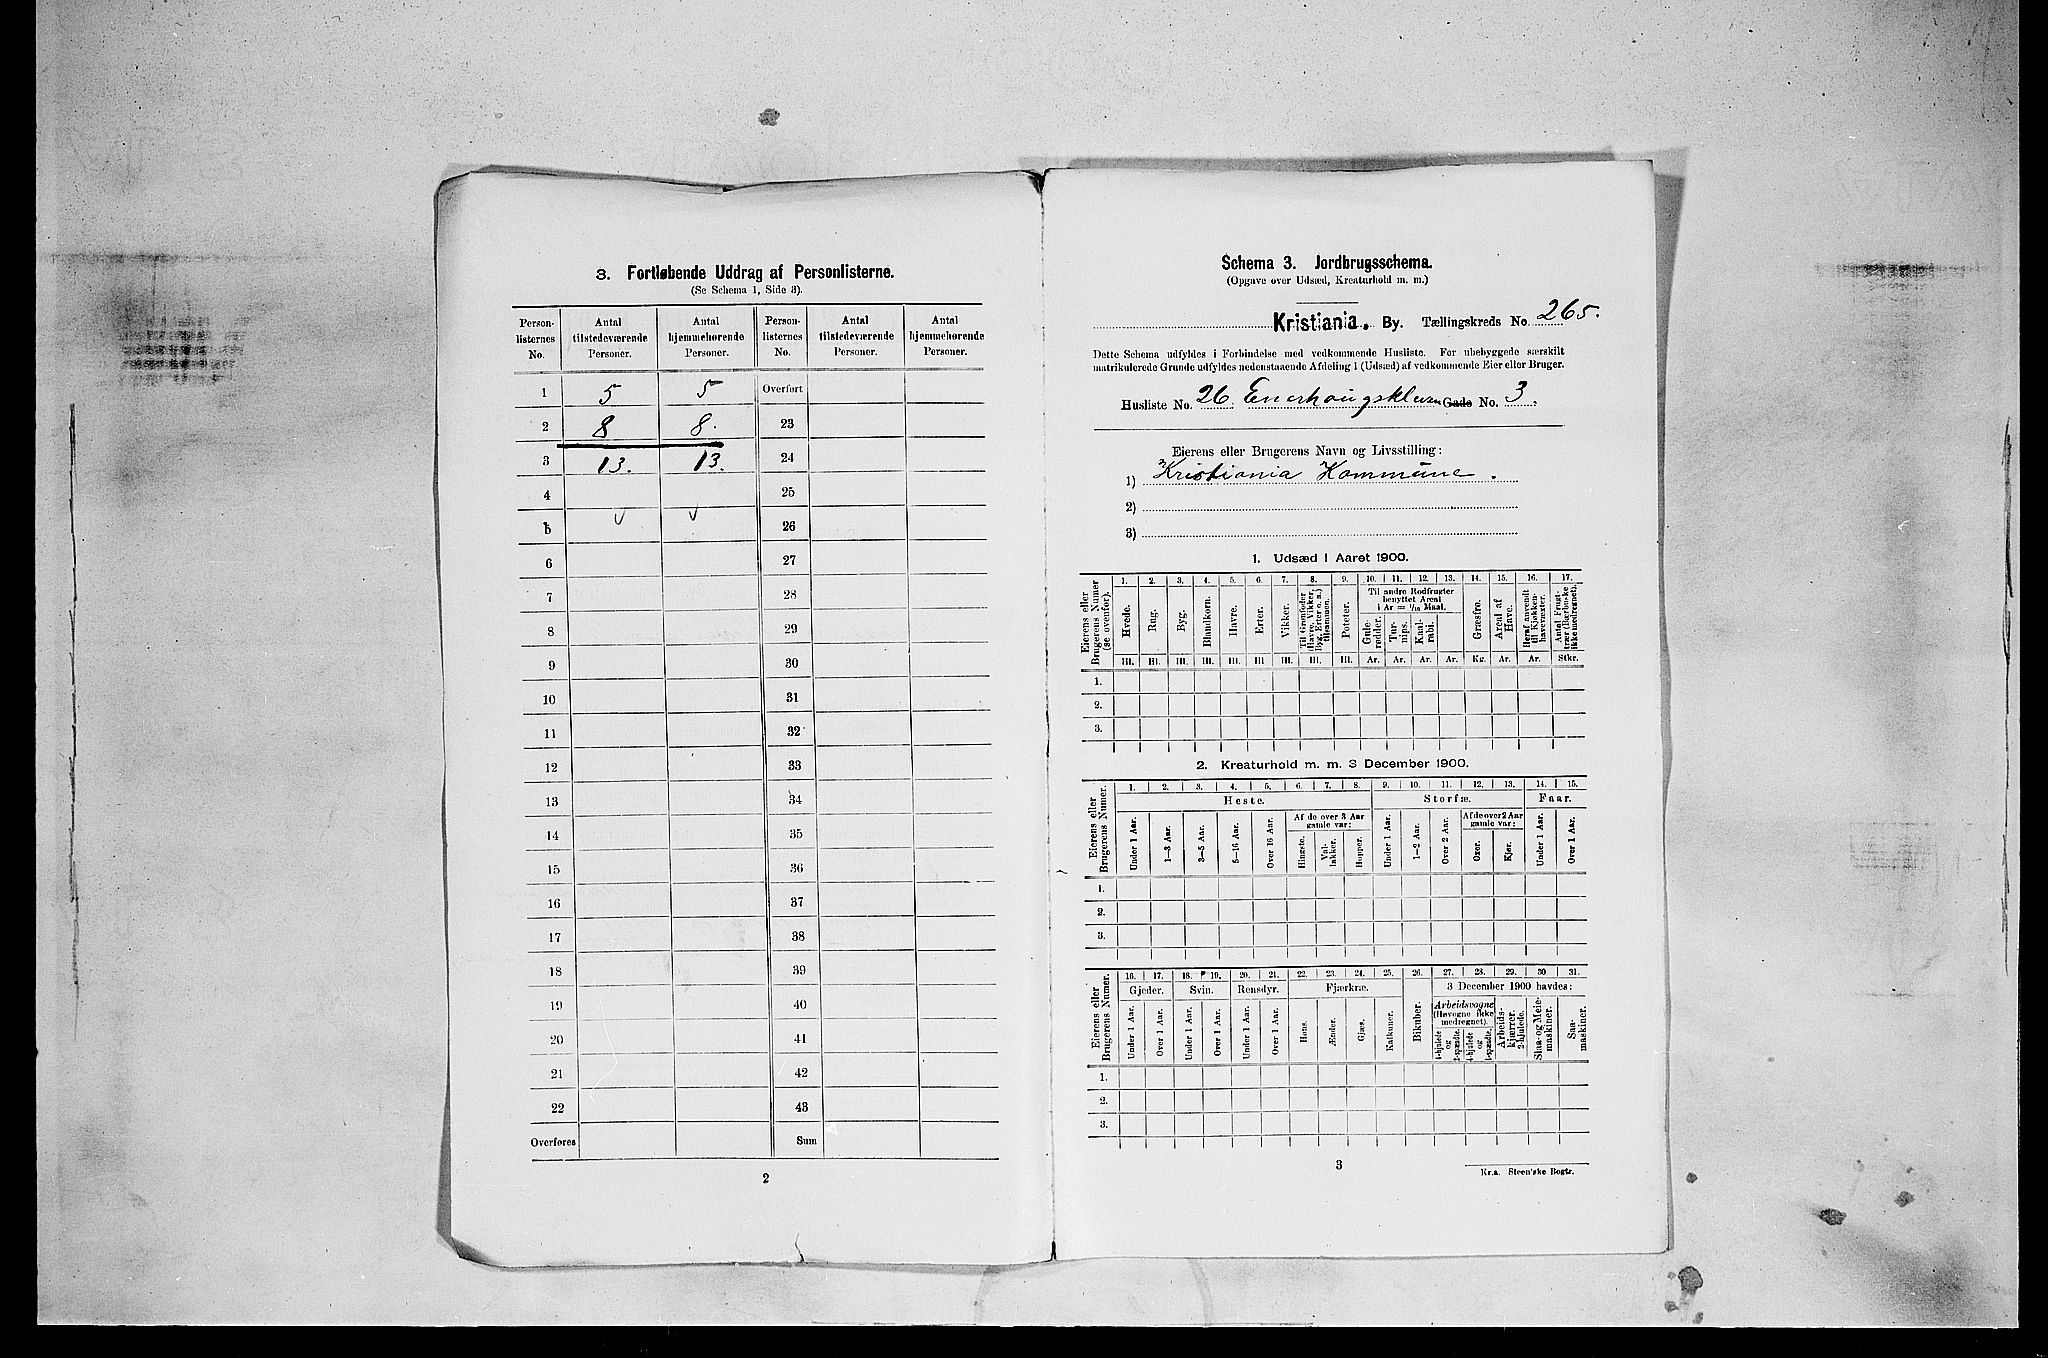 3. Fortløbende Uddrag af Personlisterne.
(Se Schema 1, Side 3).
Person-listernes No. Antal tilstedeværende Personer. Antal hjemmehørende Personer. Person-listernes No. Antal tilstedeværende Personer. Antal hjemmehørende Personer.
1 5 5 Overført
2 8 8. 23
3 13. 13. 24
4 25
5 26
6 27
7 28
8 29
9 30
10 31
11 32
12 33
13 34
14 35
15 36
16 37
17 38
18 39
19 40
20 41
21 42
22 43
Overføres Sum
2
Schema 3. Jordbrugsschema.
(Opgave over Udsæd, Kreaturhold m. m.)
Kristiania. By. Tællingskreds No. 265.
Dette Schema udfyldes i Forbindelse med vedkommende Husliste. For ubebyggede særskilt
matrikulerede Grunde udfyldes nedenstaaende Afdeling 1 (Udsæd) af vedkommende Eier eller Bruger.
Husliste No. 26. Gade No. 3.
Eierens eller Brugerens Navn og Livsstilling:
1) Kristiania Kommune.
2)
3)
1. Udsæd i Aaret 1900.
Eierens eller Brugerens Numer (se ovenfor).
1. 2. 3. 4. 5. 6. 7. 8. 9. 10. 11. 12. 13. 14. 15. 16. 17.
Hvede. Rug. Byg. Blandkorn. Havre. Erter. Vikker. Til Grønfoder (Havre, Vikker, Byg, Erter o. a.) tilsammen. Poteter.
Til andre Rodfrugter benyttet Areal i Ar = 1/10 Maal.
Gule-rødder. Tur-nips. Kaal-rabi. Græsfrø. Areal af Have. Heraf anvendt til Kjøkken-havevæxter. Antal Frugt-trær (Bærbuske ikke medregnet).
Hl. Hl. Hl. Hl. Hl. Hl. Hl. Hl. Hl. Ar. Ar. Ar. Ar. Kg. Ar. Ar. Stkr.
1.
2.
3.
2. Kreaturhold m. m. 3 December 1900.
Eierens eller Brugerens Numer.
1. 2. 3. 4. 5. 6. 7. 8. 9. 10. 11. 12. 13. 14. 15.
Heste. Storfæ. Faar.
Under 1 Aar. 1–3 Aar. 3–5 Aar. 5–16 Aar. Over 16 Aar. Af de over 3 Aar gamle var: Hingste. Val-lakker. Hopper. Under 1 Aar. 1–2 Aar. Over 2 Aar. Af de over 2 Aar gamle var: Oxer. Kjør. Under 1 Aar. Over 1 Aar.
1.
2.
3.
Eierens eller Brugerens Numer.
16. 17. 18. 19. 20. 21. 22. 23. 24. 25. 26. 27. 28. 29. 30. 31.
Gjeder. Svin. Rensdyr. Fjærkræ. Bikuber. 3 December 1900 havdes:
Under 1 Aar. Over 1 Aar. Under 1 Aar. Over 1 Aar. Under 1 Aar. Over 1 Aar. Høns. Ænder. Gjæs. Kalkuner. Arbeidsvogne (Høvogne ikke medregnet). 4-hjulede og 2-spændte. 4-hjulede og 1-spændte. Arbeids-kjærrer. 2-hjulede. Slaa- og Meie-maskiner. Saa-maskiner.
1.
2.
3.
3
Kr.a. Steen'ske Bogtr.